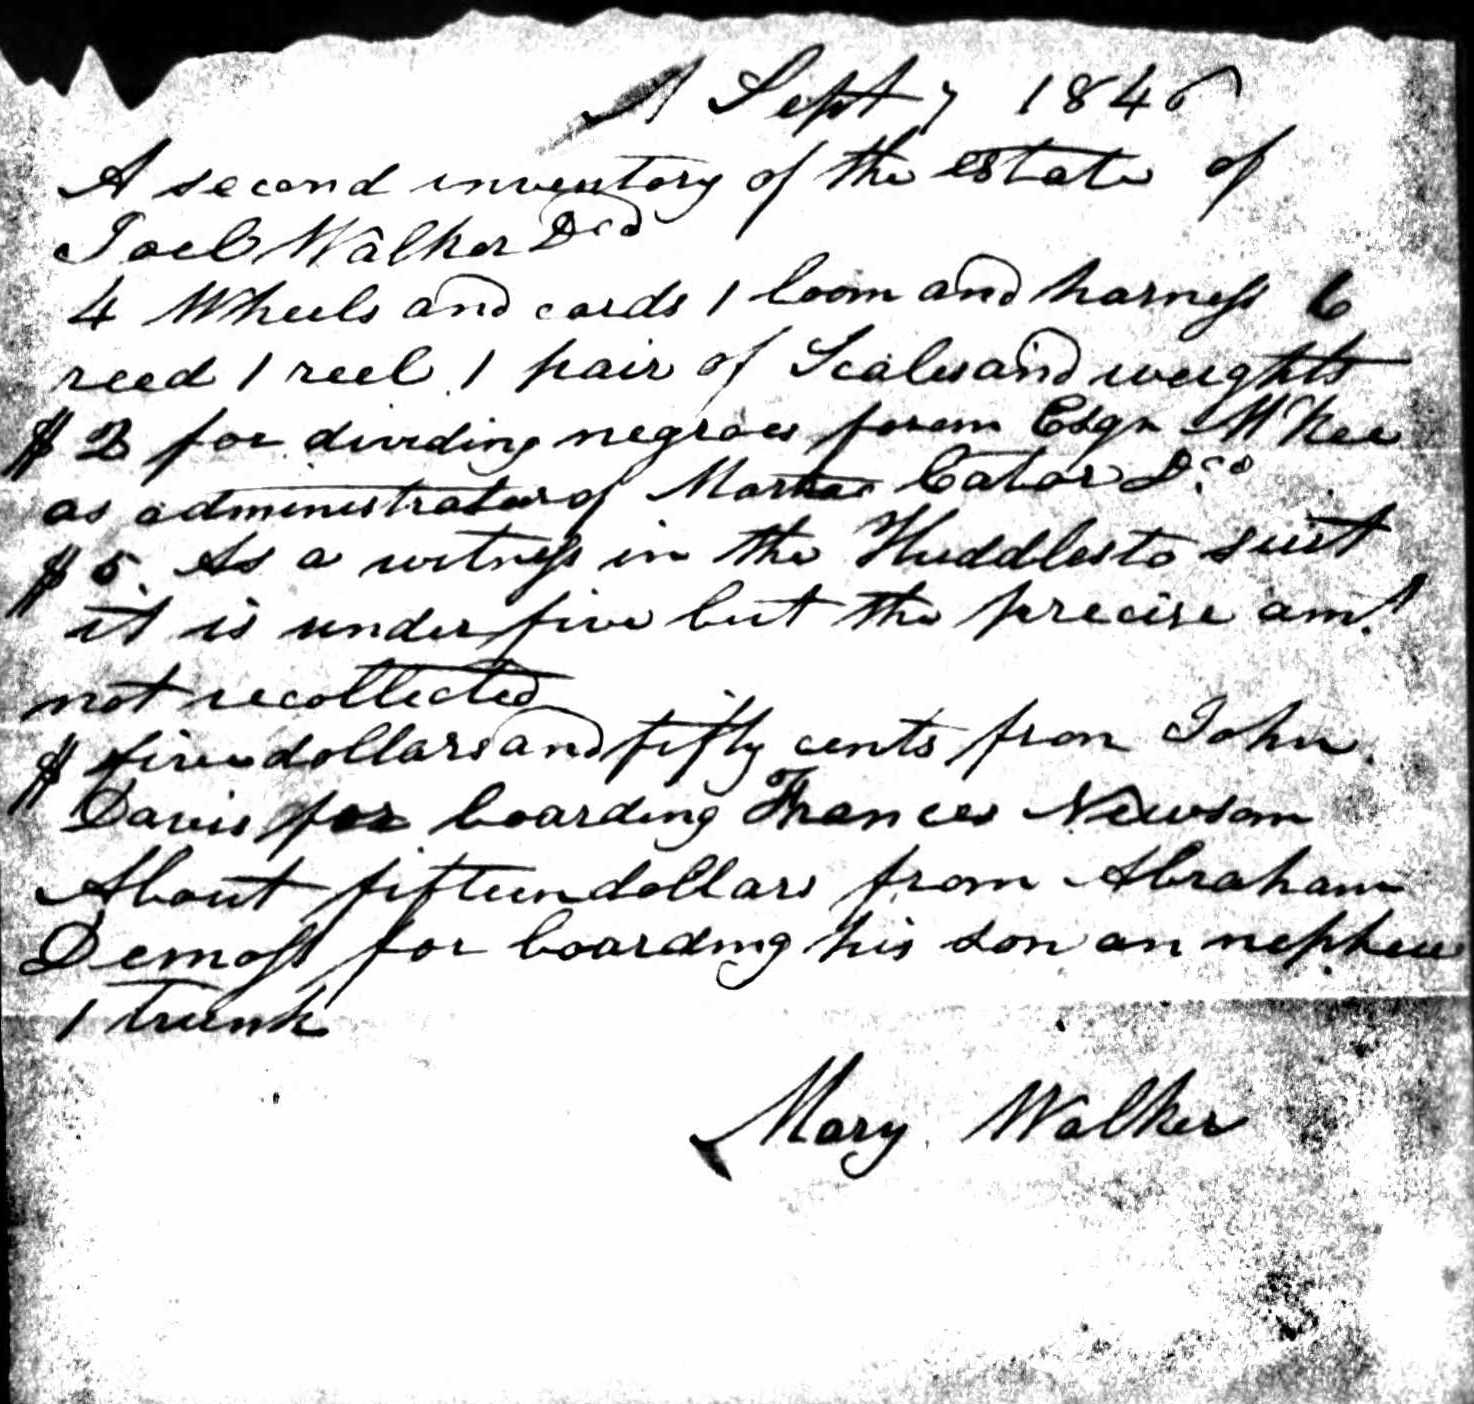 Sept 7 1846
A second inventory of the estate of
Joel Walker Dcd
4 Wheels and cards 1 loom and harness 6
reed 1 reel 1 pair of Scales and weights
$2 for dividing negroes from Esqr McNee
as administrator of Cator Dcd
$5. As a witness in the Huddlesto suit
it is under five but the precise amt
not recollected
$ five dollars and fifty cents from John
Davis for boarding Frances Newsom
About fifteen dollars from Abraham
Demoss for boarding his son an nephew
1 trunk
Mary Walker